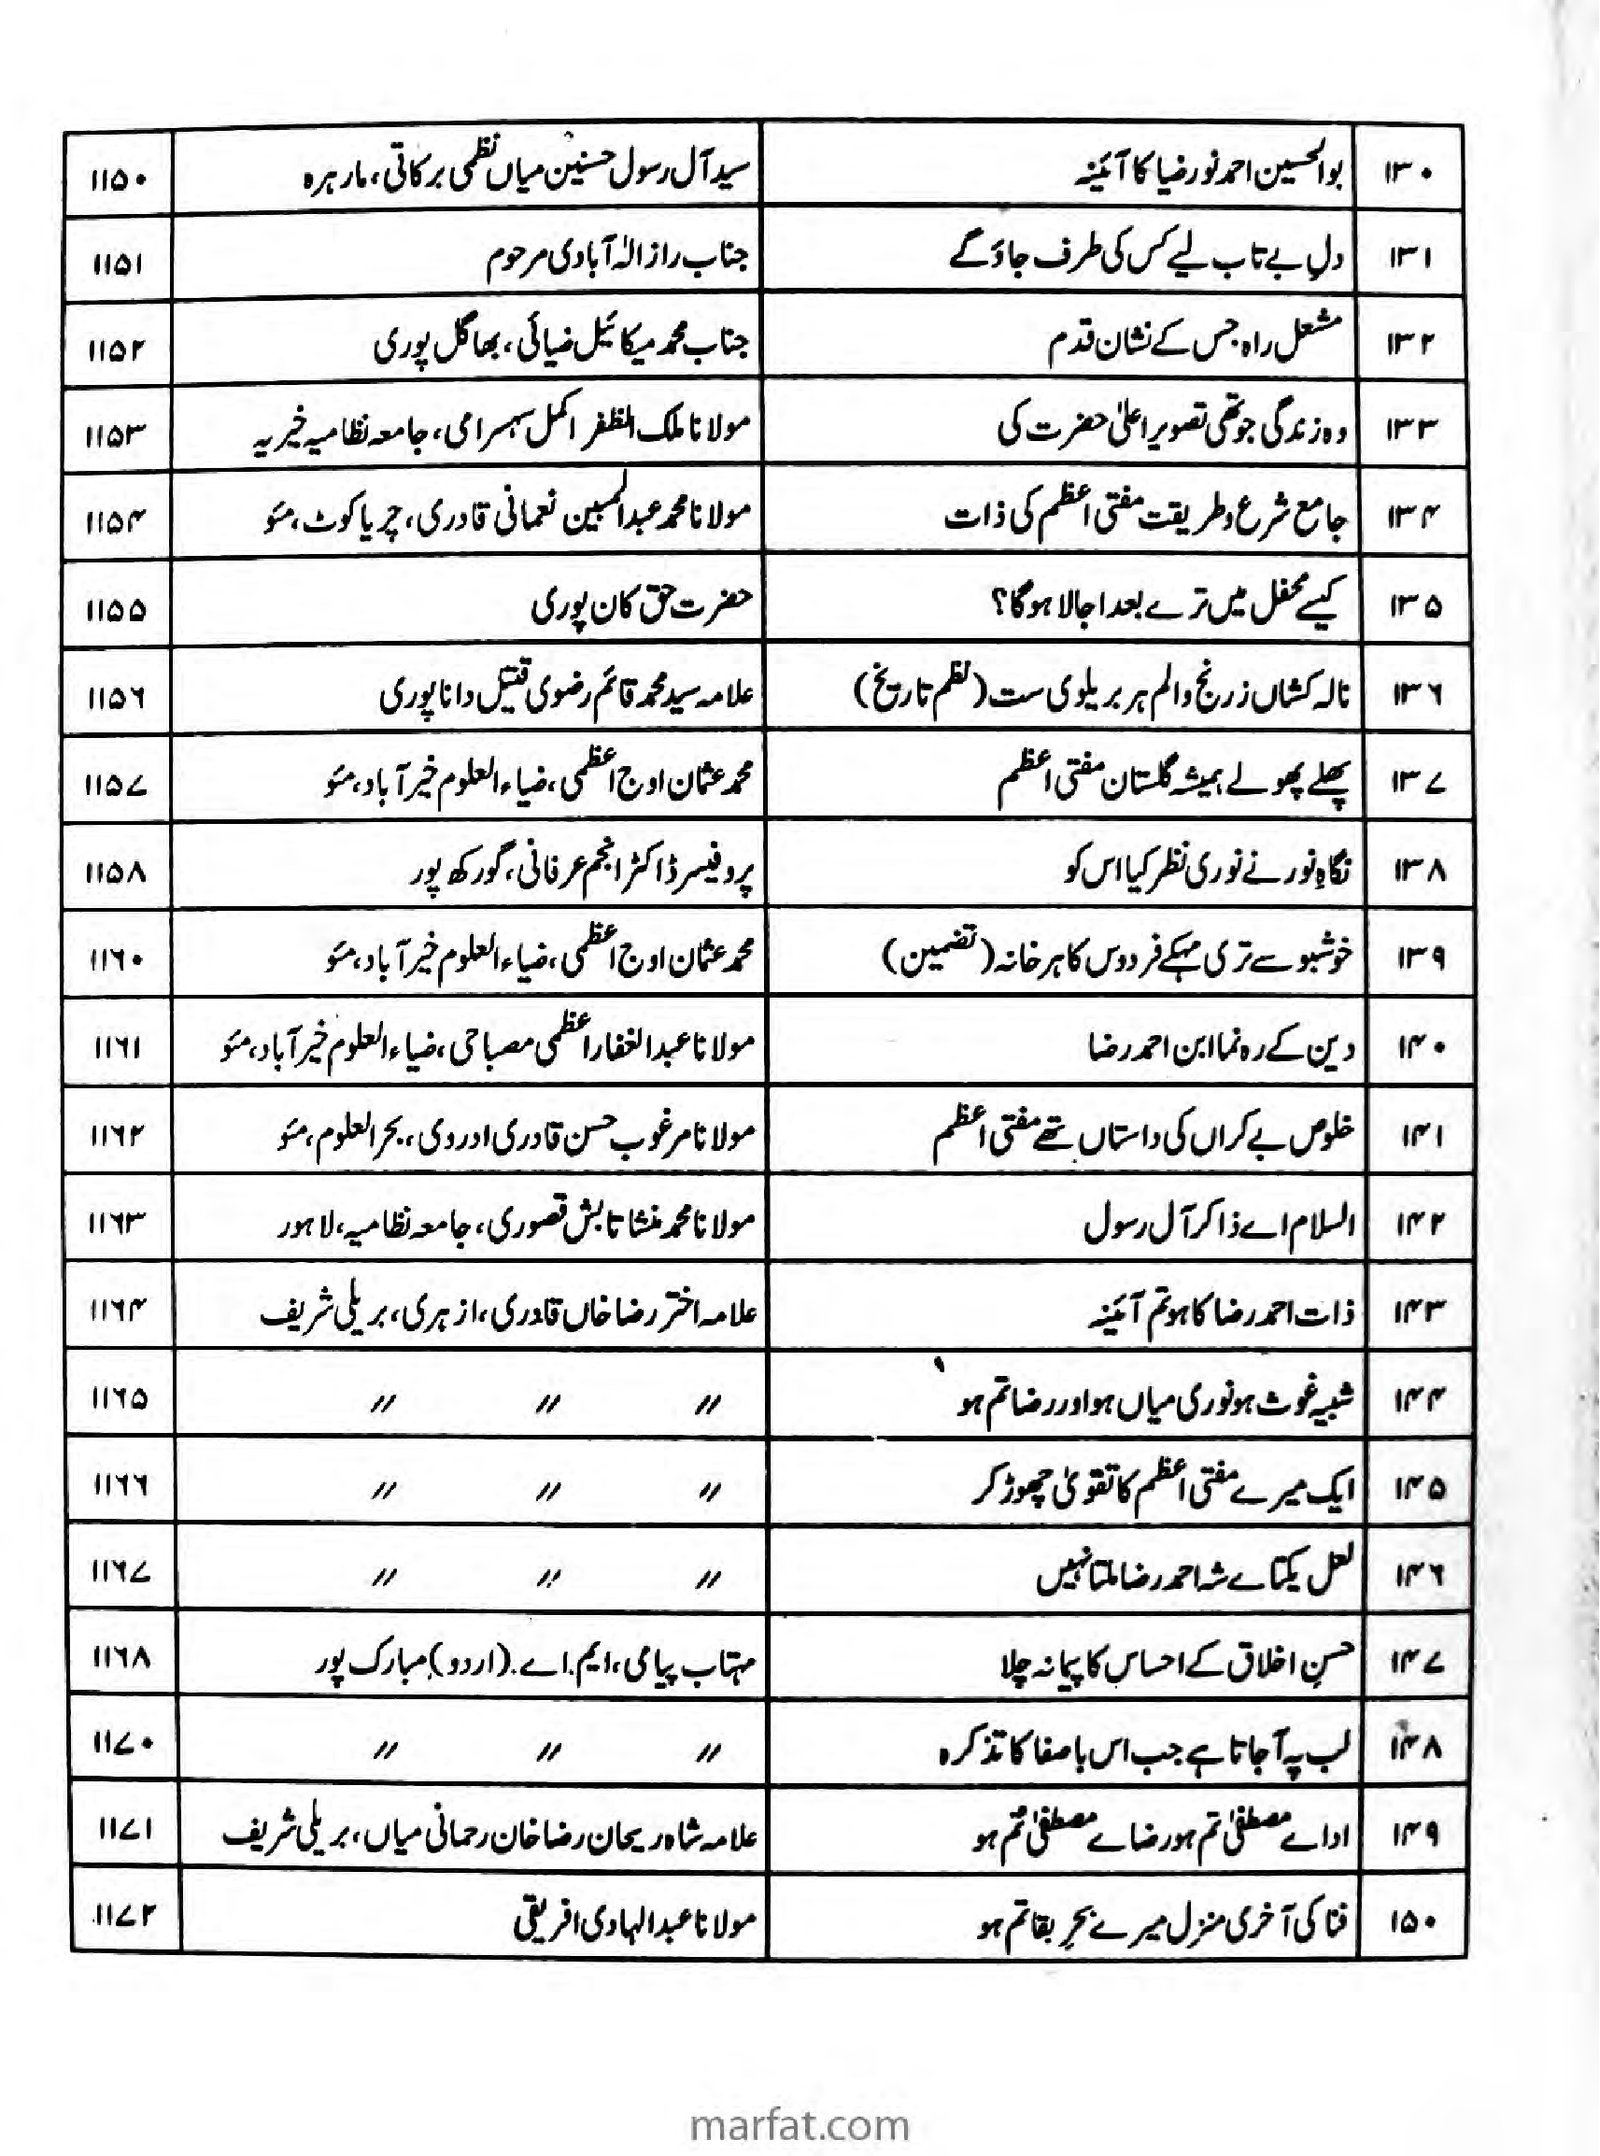 ۱۳۰ بوالحسین احمد نور ضیا کا آئینہ سید آل رسول حسنین میاں نظمی برکاتی، مارہرہ ۱۱۵۰
۱۳۱ دلِ بے تاب لیے کس کی طرف جاؤ گے جناب راز الٰہ آبادی مرحوم ۱۱۵۱
۱۳۲ مشعل راہ جس کے نشان قدم جناب محمد میکائیل ضیائی، بھاگل پوری ۱۱۵۲
۱۳۳ وہ زندگی جو تھی تصویر اعلیٰ حضرت کی مولانا ملک الظفر اکمل سہسرامی، جامعہ نظامیہ خیریہ ۱۱۵۳
۱۳۴ جامع شرع و طریقت مفتی اعظم کی ذات مولانا محمد عبدالمبین نعمانی قادری، چریاکوٹ، مئو ۱۱۵۴
۱۳۵ کیسے محفل میں ترے بعد اجالا ہوگا؟ حضرت حق کان پوری ۱۱۵۵
۱۳۶ نالہ کشاں ز رنج و الم ہر بریلوی ست (نظم تاریخ) علامہ سید محمد قائم رضوی قتیل داناپوری ۱۱۵۶
۱۳۷ پھلے پھولے ہمیشہ گلستان مفتی اعظم محمد عثمان اوج اعظمی، ضیاء العلوم خیرآباد، مئو ۱۱۵۷
۱۳۸ نگاہِ نور نے نوری نظر کیا اس کو پروفیسر ڈاکٹر انجم عرفانی، گورکھ پور ۱۱۵۸
۱۳۹ خوشبو سے تری مہکے فردوس کا ہر خانہ (تضمین) محمد عثمان اوج اعظمی، ضیاء العلوم خیرآباد، مئو ۱۱۶۰
۱۴۰ دین کے رہ نما ابن احمد رضا مولانا عبدالغفار اعظمی مصباحی، ضیاء العلوم خیرآباد، مئو ۱۱۶۱
۱۴۱ خلوص بے کراں کی داستاں تھے مفتی اعظم مولانا مرغوب حسن قادری ادروی، بحرالعلوم، مئو ۱۱۶۲
۱۴۲ السلام اے ذاکر آل رسول مولانا محمد منشا تابش قصوری، جامعہ نظامیہ، لاہور ۱۱۶۳
۱۴۳ ذات احمد رضا کا ہو تم آئینہ علامہ اختر رضا خاں قادری، ازہری، بریلی شریف ۱۱۶۴
۱۴۴ شبیہِ غوث ہو نوری میاں ہو اور رضا تم ہو // // // ۱۱۶۵
۱۴۵ ایک میرے مفتی اعظم کا تقویٰ چھوڑ کر // // // ۱۱۶۶
۱۴۶ لعل یکتاے شہ احمد رضا ملتا نہیں // // // ۱۱۶۷
۱۴۷ حسنِ اخلاق کے احساس کا پیمانہ چلا مہتاب پیامی، ایم. اے. (اردو) مبارک پور ۱۱۶۸
۱۴۸ لب پہ آجاتا ہے جب اس باصفا کا تذکرہ // // // ۱۱۷۰
۱۴۹ اداے مصطفیٰ تم ہو رضاے مصطفیٰ تم ہو علامہ شاہ ریحان رضا خان رحمانی میاں، بریلی شریف ۱۱۷۱
۱۵۰ فنا کی آخری منزل میرے بحرِ بقا تم ہو مولانا عبدالہادی افریقی ۱۱۷۲
marfat.com